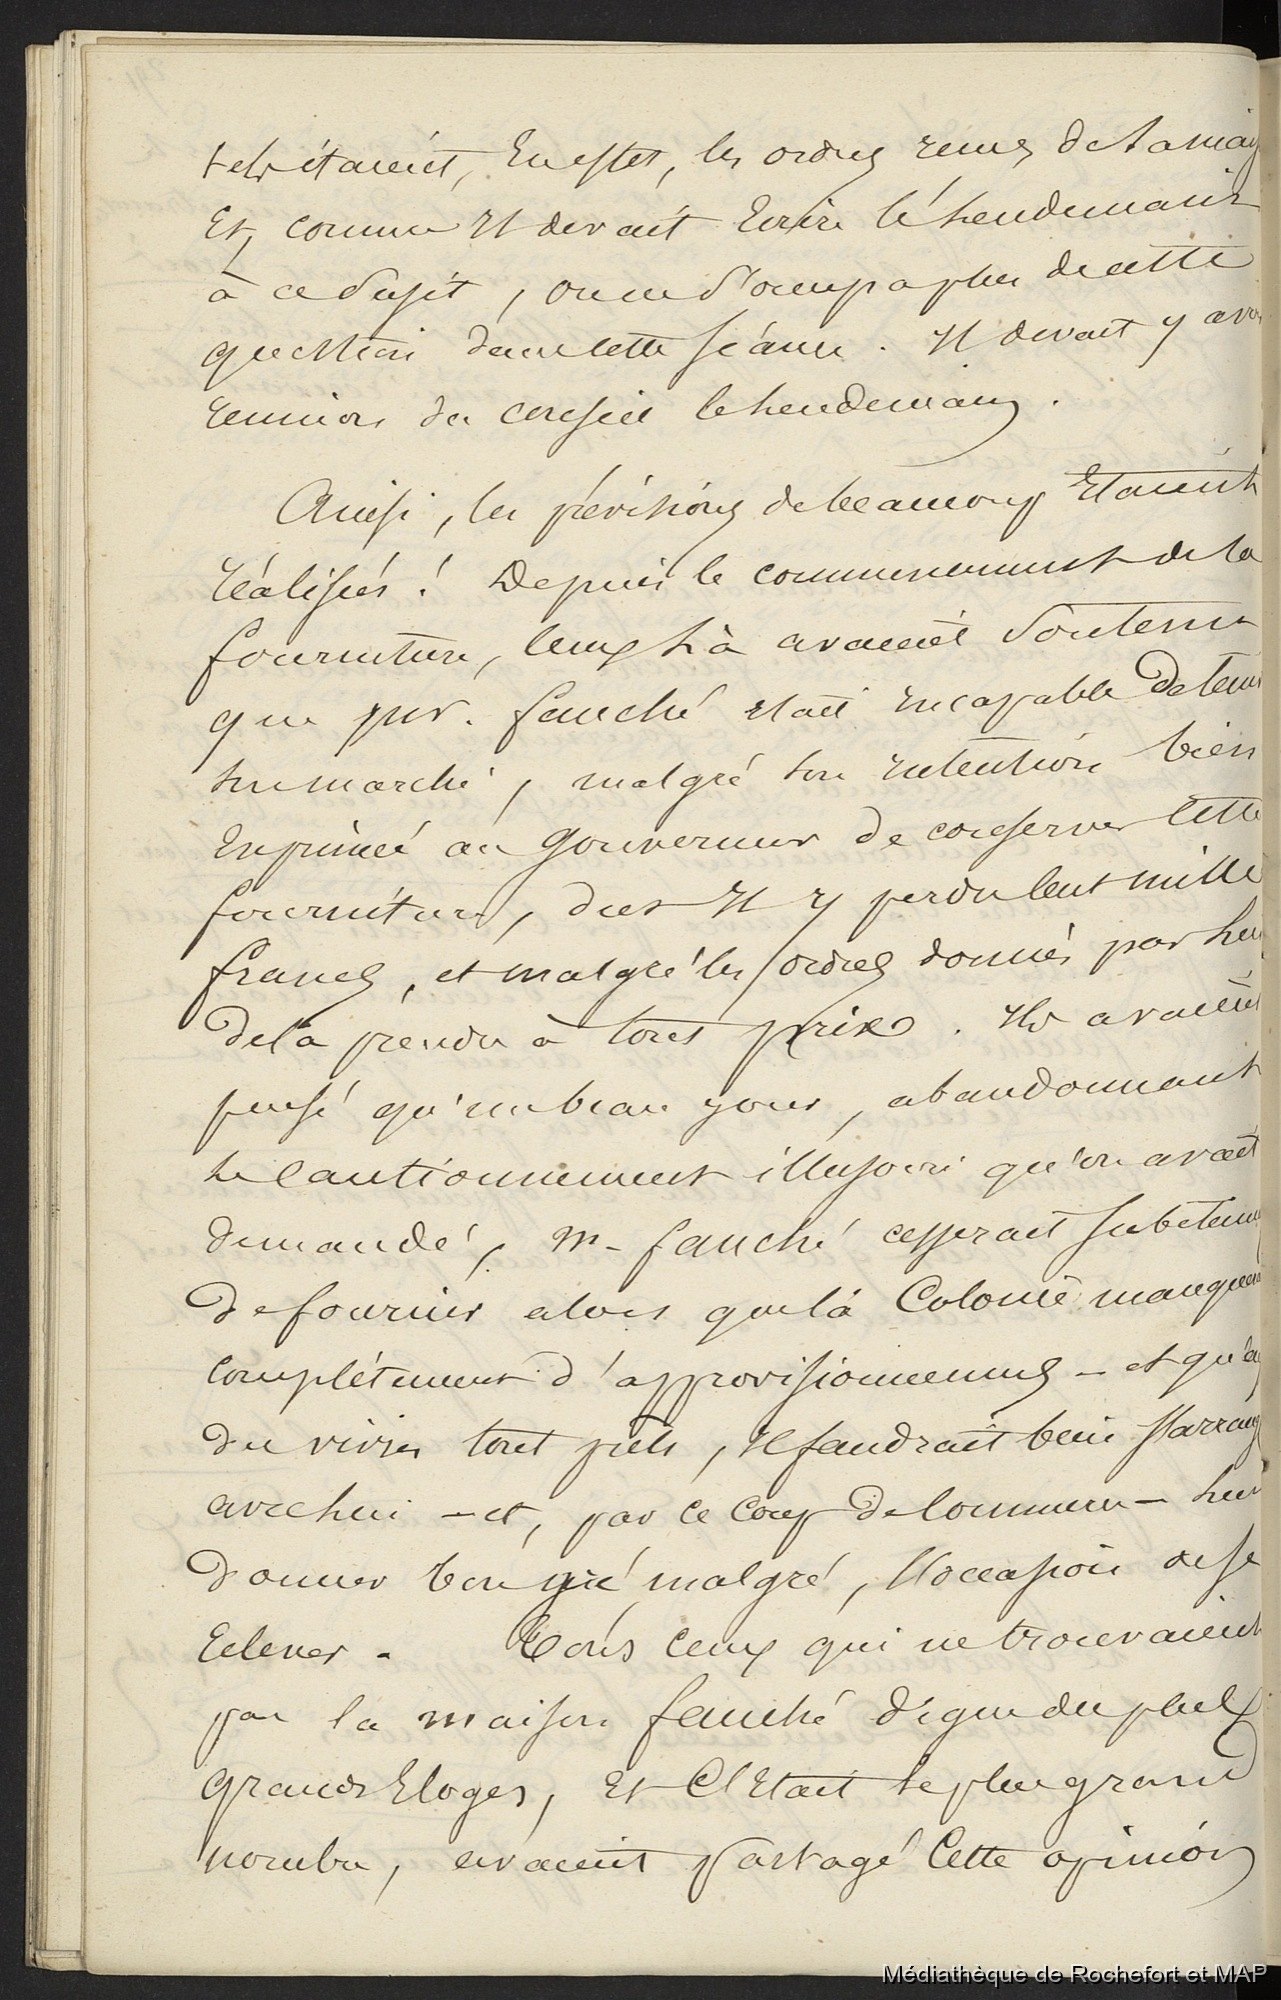 tels étaient, En effet, les ordres remis de sa main
Et, comme Il devait Ecrire le lendemain
à ce sujet, on ne s'occupa plus de cette
question dans cette séance. Il devait y avoir
reunion du conseil le lendemain.
Ainsi, les prévisions de beaucoup Etaient
réalisées! Depuis le commencement de la
fourniture, ceux là avaient soutenu
que mr. fauché était Incapable de tenir
son marché, malgré son Intention bien
Exprimée au Gouverneur de conserver cette
fourniture, dut Il y perdre cent mille
francs, et malgré les ordres donnés par lui
de la prendre à tout prix. Ils avaient
pensé qu'un beau jour, abandonnant
le Cautionnement illusoire qu'on avait
demandé, M. fauché cesserait subitement
de fournir alors que la Colonie manquerait
Complétement d'approvisionnemens – et qu'ayant
des vivres tout prêts, Il faudrait bien s'arranger
avec lui – et, par ce Coup de Commerce – lui
donner bon gré malgré, l'occasion de se
relever. Tous Ceux qui ne trouvaient
pas la maison fauché digne des plus
grands Eloges, Et C'Etait le plus grand
nombre, avaient partagé Cette opinion